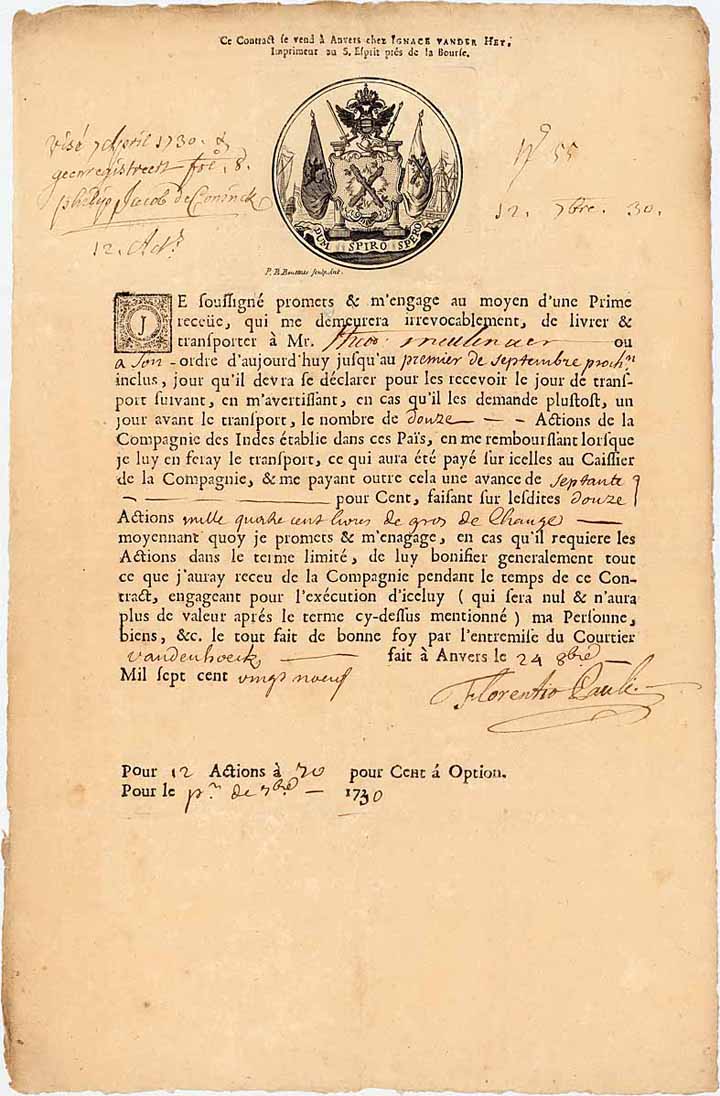 Ce Contract se vend à Anvers chez IGNACE VANDER HEY,
Imprimeur au S. Esprit prés de la Bourse.
visé 7 April 1730. &
geenregistreert fol. 8.
Phelip Jacob de Coninck
12. Act.
No 55
12. 7bre. 30.
DUM SPIRO SPERO
P. B. Bouttats sculp. Ant.
JE soussigné promets & m'engage au moyen d'une Prime
receüe, qui me demeurera irrevocablement, de livrer &
transporter à Mr. meulenaer ou
a son - ordre d'aujourd'huy jusqu'au premier de septembre proch.n
inclus, jour qu'il devra se déclarer pour les recevoir le jour de trans-
port suivant, en m'avertissant, en cas qu'il les demande plustost, un
jour avant le transport, le nombre de douze — - — Actions de la
Compagnie des Indes établie dans ces Païs, en me remboursant lorsque
je luy en feray le transport, ce qui aura été payé sur icelles au Caissier
de la Compagnie, & me payant outre cela une avance de septante
— pour Cent, faisant sur lesdites douze
Actions mille quatre cent livres de gros de Change —
moyennant quoy je promets & m'enagage, en cas qu'il requiere les
Actions dans le terme limité, de luy bonifier generalement tout
ce que j'auray receu de la Compagnie pendant le temps de ce Con-
tract, engageant pour l'exécution d'iceluy ( qui sera nul & n'aura
plus de valeur aprés le terme cy-dessus mentionné ) ma Personne,
biens, &c. le tout fait de bonne foy par l'entremise du Courtier
vandenhoeck — fait à Anvers le 24 8bre —
Mil sept cent vingt noeuf
Florentio Pauli
Pour 12 Actions à 70 pour Cent á Option.
Pour le pr. de 7bre — 1730